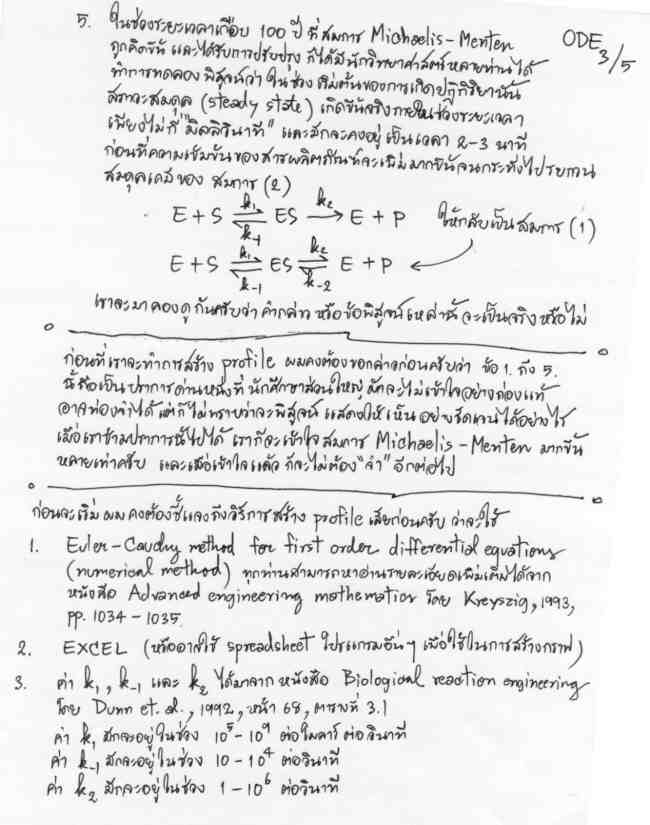 5. ในช่วงระยะเวลาเกือบ 100 ปี ที่สมการ Michaelis-Menten
ODE 3/5
ถูกคิดขึ้น และได้รับการปรับปรุง ก็ได้มีนักวิทยาศาสตร์หลายท่านได้
ทำการทดลอง พิสูจน์ว่า ในช่วงเริ่มต้นของการเกิดปฏิกิริยานั้น
สภาวะสมดุล (steady state) เกิดขึ้นจริงภายในช่วงระยะเวลา
เพียงไม่กี่ "มิลลิวินาที" และมักจะคงอยู่เป็นเวลา 2-3 นาที
ก่อนที่ความเข้มข้นของสารผลิตภัณฑ์จะเพิ่มมากขึ้นจนกระทั่งไปรบกวน
สมดุลเคมีของ สมการ (2)
E + S ⇌ ES → E + P k₁ k₋₁ k₂ ให้กลับเป็นสมการ (1)
E + S ⇌ ES ⇌ E + P k₁ k₋₁ k₂ k₋₂
เราจะมาลองดูกันครับว่า คำกล่าว หรือข้อพิสูจน์เหล่านี้จะเป็นจริงหรือไม่
ก่อนที่เราจะทำการสร้าง profile ผมคงต้องขอกล่าวก่อนครับว่า ข้อ 1. ถึง 5.
นี้ถือเป็นปราการด่านหนึ่งที่ นักศึกษาส่วนใหญ่ มักจะไม่เข้าใจอย่างถ่องแท้
อาจท่องจำได้ แต่ก็ไม่ทราบว่าจะพิสูจน์ แสดงให้เห็น อย่างชัดเจนได้อย่างไร
เมื่อเราข้ามปราการนี้ไปได้ เราก็จะเข้าใจ สมการ Michaelis-Menten มากขึ้น
หลายเท่าครับ และเมื่อเข้าใจแล้ว ก็จะไม่ต้อง "จำ" อีกต่อไป
ก่อนจะเริ่ม ผมคงต้องชี้แจงถึงวิธีการสร้าง profile เสียก่อนครับ ว่าจะใช้
1. Euler-Cauchy method for first order differential equations
(numerical method) ทุกท่านสามารถหาอ่านรายละเอียดเพิ่มเติมได้จาก
หนังสือ Advanced engineering mathematics โดย Kreyszig, 1993,
pp. 1034-1035.
2. EXCEL (หรืออาจใช้ spreadsheet โปรแกรมอื่นๆ เพื่อใช้ในการสร้างกราฟ)
3. ค่า k₁, k₋₁ และ k₂ ได้มาจาก หนังสือ Biological reaction engineering
โดย Dunn et. al., 1992, หน้า 68, ตารางที่ 3.1
ค่า k₁ มักจะอยู่ในช่วง 10⁵ - 10⁹ ต่อโมลาร์ ต่อวินาที
ค่า k₋₁ มักจะอยู่ในช่วง 10 - 10⁴ ต่อวินาที
ค่า k₂ มักจะอยู่ในช่วง 1 - 10⁶ ต่อวินาที